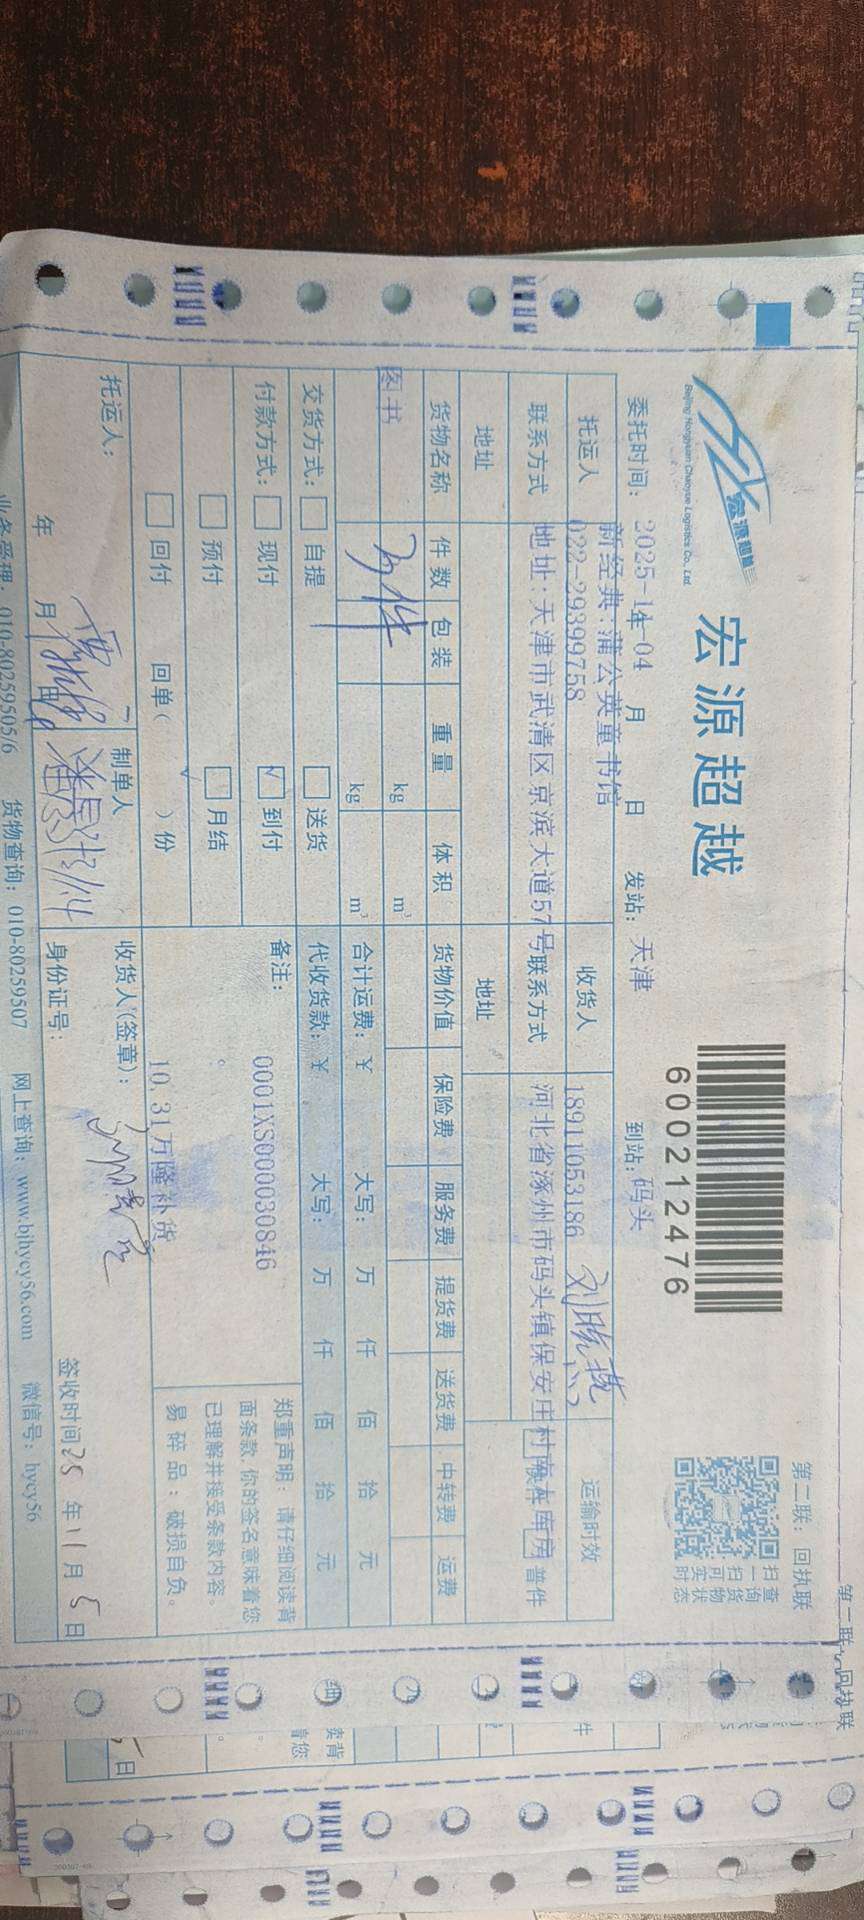 宏源超越
Beijing Hongyuan Chaoyue Logistics Co., Ltd
宏源超越
600212476
第二联：回执联
扫一扫可实时
查询货物状态
委托时间：2025-11-04 年 月 日 发站：天津 到站：码头
托运人 新经典：蒲公英童书馆 收货人 刘晓燕 运输时效
联系方式 022-29399758 联系方式 18911053186 普件
地址 地址：天津市武清区京滨大道57号 地址 河北省涿州市码头镇保安庄村
货物名称 件数 包装 重量 体积 货物价值 保险费 服务费 提货费 送货费 中转费 运费
图书 件 kg m³
kg m³ 合计运费：￥ 大写： 万 仟 佰 拾 元
交货方式： 自提 送货 代收货款：￥ 大写： 万 仟 佰 拾 元
付款方式： 现付 √ 到付 备注： 0001XS000030846
预付 月结
回付 回单（ ）份 10.31万隆补货
郑重声明：请仔细阅读背
面条款，你的签名意味着您
已理解并接受条款内容。
易碎品：破损自负。
托运人： 制单人 收货人（签章）：
年 月 日 身份证号： 签收时间 25 年 11 月 5 日
业务受理：010-80259505/6 货物查询：010-80259507 网上查询：www.bjhycy56.com 微信号：hycy56
第二联：回执联